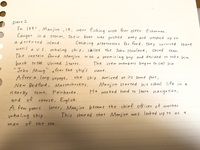 part 2
In 1841, Manjiro, 14, went fishing with four friend fishermen.
Caught in a storm, their boat was pushed away and washed up on
a deserted island. Enduring alternate, they survived there
until a U.S. whaling ship, called the John Howland, saved them.
The captain found Manjiro was a promising boy and decided to take him
back to the United States. The crew members began to call him
"John Mung", after the ship's name.
After a long voyage, the ship arrived at its home port,
New Bedford, Massachusetts. Manjiro started his school life in a
nearby town, Fairhaven. He worked hard to learn navigation,
and of course, English.
A few years later, Manjiro became the chief officer of another
whaling ship. This showed that Manjiro was looked up to as a
man of the sea.